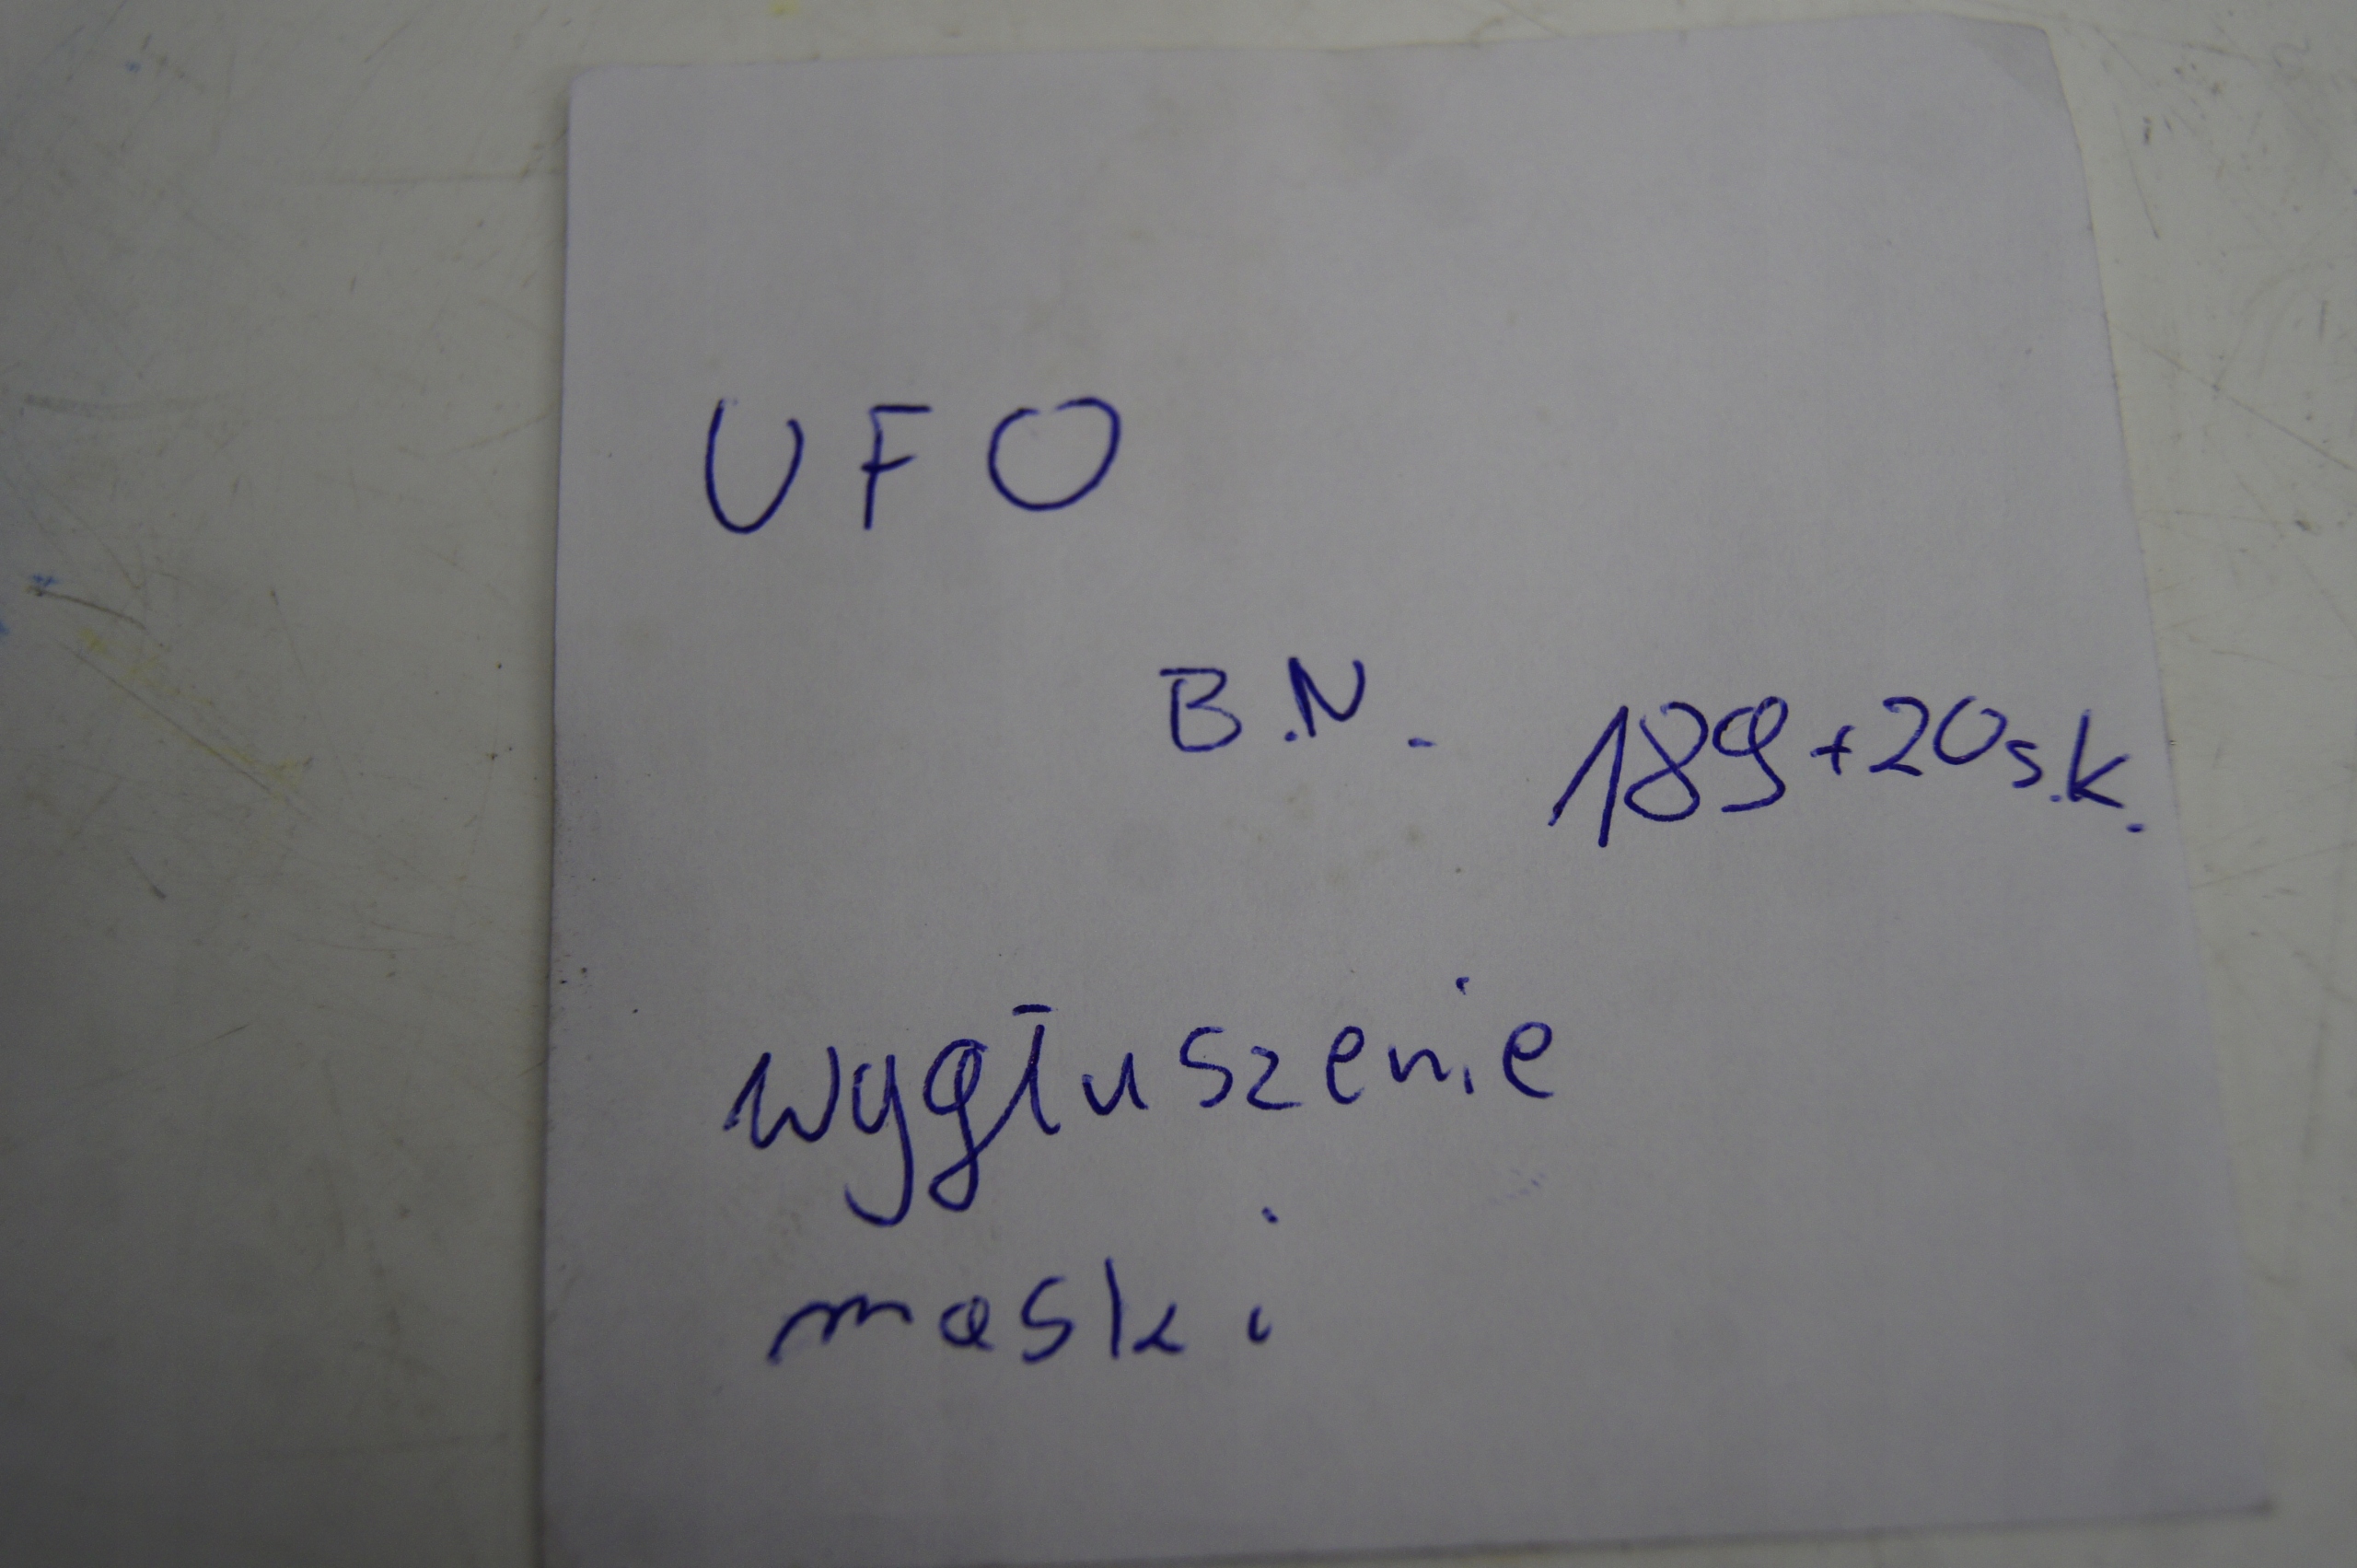 UFO
B.N. 189+20s.k.
wygłuszenie
maski